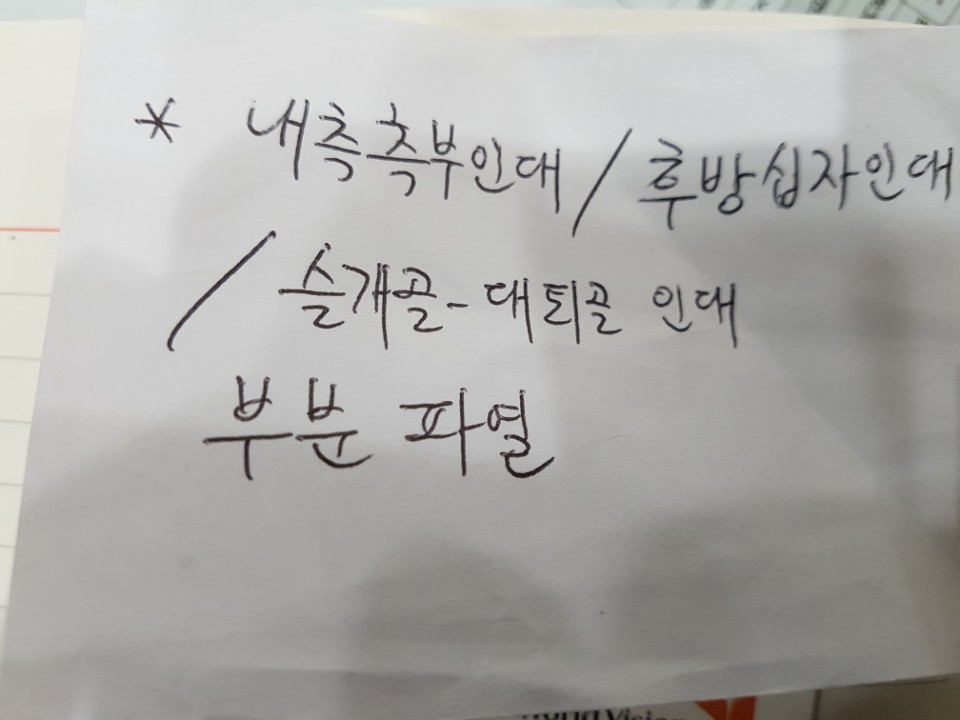 * 내측측부인대 / 후방십자인대
/ 슬개골-대퇴골 인대
부분 파열